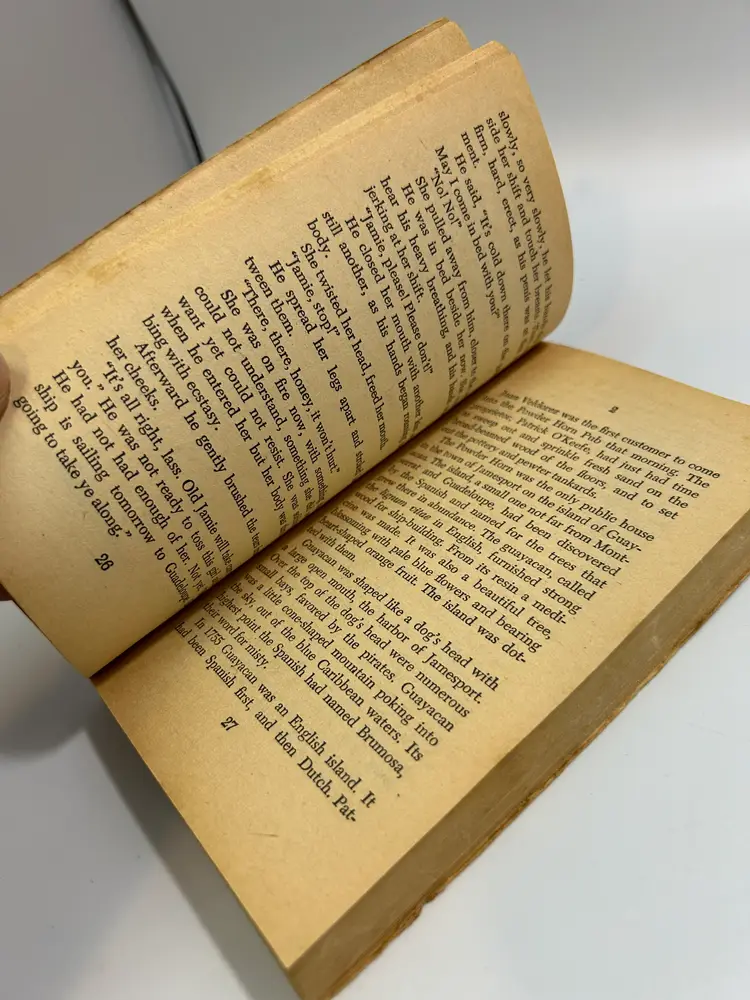 slowly, so very slowly, he let his hand
side her shift and touch her breasts.
firm, hard, erect, as his penis was at
ment.
He said, "It's cold down there on the
May I come in bed with you?"
"No! No!"
She pulled away from him, closer to the
He was in bed beside her now. She
hear his heavy breathing, and his hands
jerking at her shift.
"Jamie, please! Please don't!"
He closed her mouth with another kiss,
still another, as his hands began
body.
She twisted her head, freed her mouth,
"Jamie, stop!"
He spread her legs apart and
tween them.
"There, there, honey, it won't hurt."
She was on fire now, with something
could not understand, something she
want yet could not resist. She was
when he entered her but her body was
bing with ecstasy.
Afterward he gently brushed the tears
her cheeks.
"It's all right, lass. Old Jamie will take
you." He was not ready to toss this
He had not had enough of her. Not yet
ship is sailing tomorrow to Guadeloupe
going to take ye along."
26
2
was the first customer to come
into the Powder Horn Pub that morning. The
proprietor, Patrick O'Keefe, had just had time
to sweep out and sprinkle fresh sand on the
broad-beamed wood of the floors, and to set
the pottery and pewter tankards.
The Powder Horn was the only public house
the town of Jamesport on the island of Guay-
The island, a small one not far from Mont-
and Guadeloupe, had been discovered
by the Spanish and named for the trees that
grew there in abundance. The guayacan, called
the lignum vitae in English, furnished strong
wood for ship-building. From its resin a medi-
was made. It was also a beautiful tree,
blossoming with pale blue flowers and bearing
heart-shaped orange fruit. The island was dot-
ted with them.
Guayacan was shaped like a dog's head with
a large open mouth, the harbor of Jamesport.
Over the top of the dog's head were numerous
small bays, favored by the pirates. Guayacan
was a little cone-shaped mountain poking into
the sky, out of the blue Caribbean waters. Its
highest point the Spanish had named Brumosa,
their word for misty.
In 1755 Guayacan was an English island. It
had been Spanish first, and then Dutch. Pat-
27